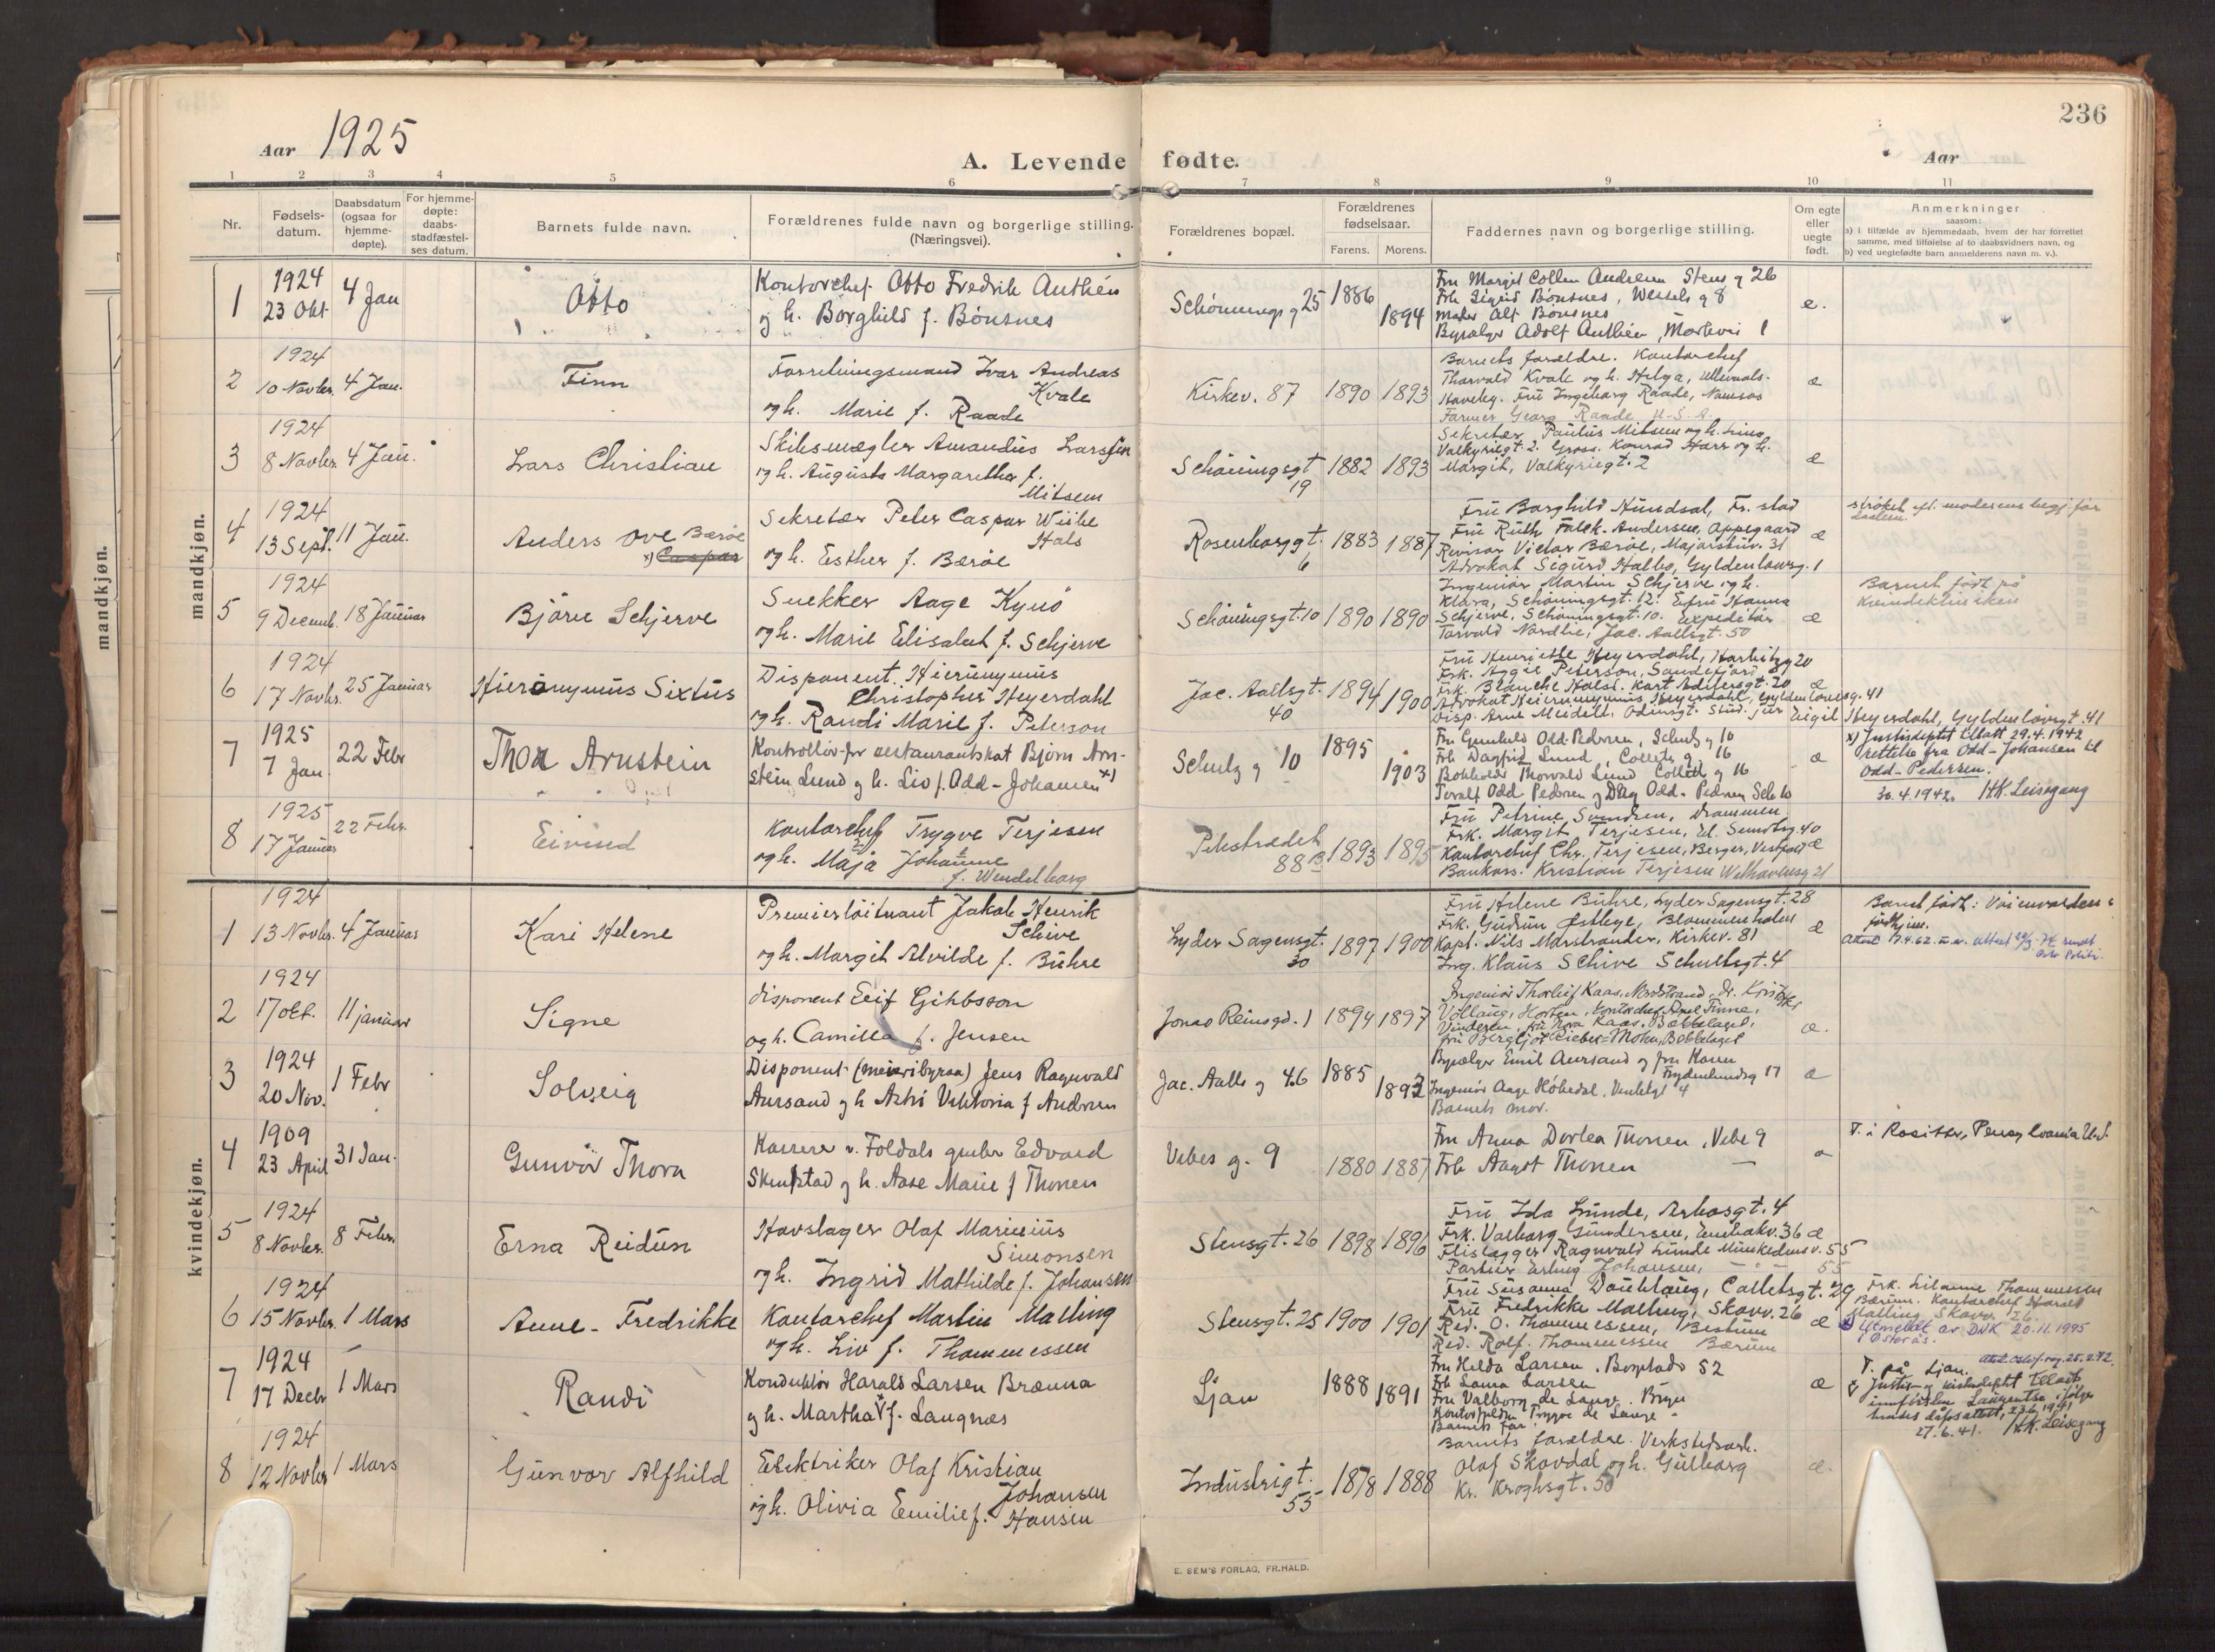 236
Aar 1925
A. Levende fødte.
Aar
1 2 3 4 5 6 7 8 9 10 11
Nr.
Fødsels-
datum.
Daabsdatum
(ogsaa for
hjemme-
døpte).
For hjemme-
døpte:
daabs-
stadfæstel-
ses datum.
Barnets fulde navn.
Forældrenes fulde navn og borgerlige stilling.
(Næringsvei).
Forældrenes bopæl.
Forældrenes
fødselsaar.
Farens. Morens.
Faddernes navn og borgerlige stilling.
Om egte
eller
uegte
født.
Anmerkninger
saasom:
a) i tilfælde av hjemmedaab, hvem der har forrettet
samme, med tilføielse af to daabsvidners navn, og
b) ved uegtefødte barn anmelderens navn m. v.).
mandkjøn.
mandkjøn.
1
1924
23 Okt.
4 Jan
Otto
Kontorchef Otto Fredrik Anthén
og h. Borghild f. Bönsnes
Schønnings g 25
1886
1894
Fru Margit Collin Andersen Stens g 26
Frk Sigrid Bönsnes, Wessels g 8
Alf Bönsnes
Byselger Adolf Anthén,
e.
2
1924
10 Novbr.
4 Jan.
Finn
Forretningsmand Ivar Andreas
Kvale
og h. Marie f. Raade
Kirkev. 87
1890
1893
Barnets forældre. Kontorchef
Thorvald Kvale og h. Helga, Ullevaals-
Havely. Fru Ingeborg Raade, Namsos
Farmer Georg Raade U-S.A.
æ
3
1924
8 Novbr.
4 Jan.
Lars Christian
Skibsmægler Amandus Larssen
og h. Augusta Margarethe f.
Mitsem
Schöningsgt
19
1882
1893
Sekretær Paulus Mitsem og h.
Valkyriegt. 2. Gross. Konrad Harr og h.
Margit, Valkyriegt. 2
æ
4
1924
13 Sept.
11 Jan.
Anders Ove Bærøe
x) Caspar
Sekretær Peter Caspar Wiibe
Hals
og h. Esther f. Bærøe
Rosenborggt.
6
1883
1887
Fru Borghild Hundsal, Fr. stad
Fru Ruth Falck-Andersen, Oppegaard
Revisor Victor Bærøe, Majorstuv. 31
Advokat Sigurd Halbo, Gyldenløvesg. 1
æ
strøket eft. moderens begj. før
daaben.
5
1924
9 Decemb.
18 Januar
Björn Schjerve
Snekker Aage Kynö
og h. Marie Elisabet f. Schjerve
Schöningsgt. 10
1890
1890
Ingeniør Martin Schjerve og h.
Klara, Schöningsgt. 12. Enkefru Hanna
Schjerve, Schöningsgt. 10. Expeditør
Torvald Nordlie, Jac. Aallsgt. 50
æ
Barnet født på
Kvindeklinikken
6
1924
17 Novbr.
25 Januar
Hieronymus Sixtus
Disponent Hieronymus
Christopher Heyerdahl
og h. Randi Marie f. Peterson
Jac. Aallsgt.
40
1894
1900
Fru Henriette Heyerdahl, Harbitzg 20
Frk. Aggie Peterson, Sandefjord,
Frk. Blanche Holst. Kort Adelersgt. 20
Advokat Hieronymus Heyerdahl, Gyldenløvesg. 41
Disp. Arne Meidell, Odinsgt. Stud. jur Eigil Heyerdahl, Gyldenløvesgt. 41
æ
7
1925
7 Jan.
22 Febr
Thor Arnstein
Kontrollør for restaurantskat Bjørn Arn-
stein Lund og h. Liv f. Odd-Johansen x)
Schultz g 10
1895
1903
Fru Gunhild Odd-Pedersen, Schultz g 10
Frk Dagfrid Lund, Colletts g 16
Bokholder Thorvald Lund Collett g 16
Toralf Odd-Pedersen og Dag Odd-Pedersen Sch 10
æ
x) Justisdeptet tillatt 29.4.1942
rettelse fra Odd-Johansen til
Odd-Pedersen.
30.4.1942. H.K. Leisegang
8
1925
17 Januar
22 Febr.
Eivind
Kontorchef Trygve Terjesen
og h. Maja Johanne
f. Wendelborg
Pilestrædet
88 B
1893
1895
Fru Petrine Svendsen, Drammen
Frk. Margit Terjesen, Ed. Sundtsg. 40
Kontorchef Chr. Terjesen, Berger, Vestfold
Bankass. Kristian Terjesen Welhavensg 21
æ
kvindekjøn.
1
1924
13 Novbr.
4 Januar
Kari Helene
Premierløitnant Jakob Henrik
Schive
og h. Margit Alvilde f. Bühre
Lyder Sagensgt.
30
1897
1900
Fru Helene Bühre, Lyder Sagensgt. 28
Frk. Gudrun Østbye, Blommenholm
Kapt. Nils Marstrander, Kirkev. 81
Ing. Klaus Schive Schultsgt. 4
æ
Barnet født:
2
1924
17 okt.
11 januar
Signe
disponent Leif Gibbsson
og h. Camilla f. Jensen
Jonas Reinsgd. 1
1894
1897
Ingeniør Thorleif Kaas, Nordstrand,
Vollaug, Horten, kontorchef Finne,
Vinderen, fru Nora Kaas, Bækkelaget,
fru Bergljot Rieber-Mohn, Bækkelaget
æ.
3
1924
20 Nov.
1 Febr
Solveig
Disponent (meieribyraa) Jens Ragnvald
Aursand og h Astri Viktoria f Andersen
Jac. Aalls g 46
1885
1892
Byselger Emil Aursand og fru Karen
Frydenlundsg 17
Ingeniør Aage Hobedal, 4
Barnets mor.
æ
4
1909
23 April
31 Jan.
Gunvör Thora
Kasserer v. Foldals gruber Edvard
Skumstad og h. Aase Marie f Thonen
Vibes g. 9
1880
1887
Fru Anna Dortea Thonen, Vibe 9
Frk Aagot Thonen —
F. i Rositer, Pensylvania U.S.
5
1924
8 Novbr.
8 Febr.
Erna Reidun
Hovslager Olaf Marinius
Simonsen
og h. Ingrid Mathilde f. Johansen
Stensgt. 26
1898
1896
Fru Ida Lunde, Arbosgt. 4
Frk. Valborg Gundersen, 36
Flislægger Ragnvald Lunde Munkedamsv. 55
Portier Erling Johansen, — " — 55
æ
6
1924
15 Novbr.
1 Mars
Anne-Fredrikke
Kontorchef Martin Malling
og h. Liv f. Thommessen
Stensgt. 25
1900
1901
Fru Susanna Dauhlaug, Colletsgt. 29
Fru Fredrikke Malling, Skovv. 26
Red. O. Thommessen, Bestum
Red. Rolf. Thommessen Bærum
æ
Frk. Thommessen
Bærum. Kontorchef Harald
Malling Skovv. 26.
Utmeldt av DNK 20.11.1995
i Østerås.
7
1924
17 Decbr
1 Mars
Randi
Konduktør Harald Larsen Brænna
og h. Martha f. Laugnæs
Ljan
1888
1891
Fru Hilda Larsen. Bogstads 52
Frk Laura Larsen
Fru Valborg de Lange. Bryn
Trygve de Lange "
Barnets far
æ
F. på Ljan.
Justis- og tillatt
innførselen ifølge
hendes dåpsattest, 23.6.1941
27.6.41. H.K. Leisegang
8
1924
12 Novbr
1 Mars
Gunvor Alfhild
Elektriker Olaf Kristian
Johansen
og h. Olivia Emilie f. Hansen
Industrigt.
55
1878
1888
Barnets forældre. Verkstedsarb.
Olaf Skovdal og h. Gulborg
Kr. Kroghsgt. 50
æ.
E. SEM'S FORLAG, FR.HALD.